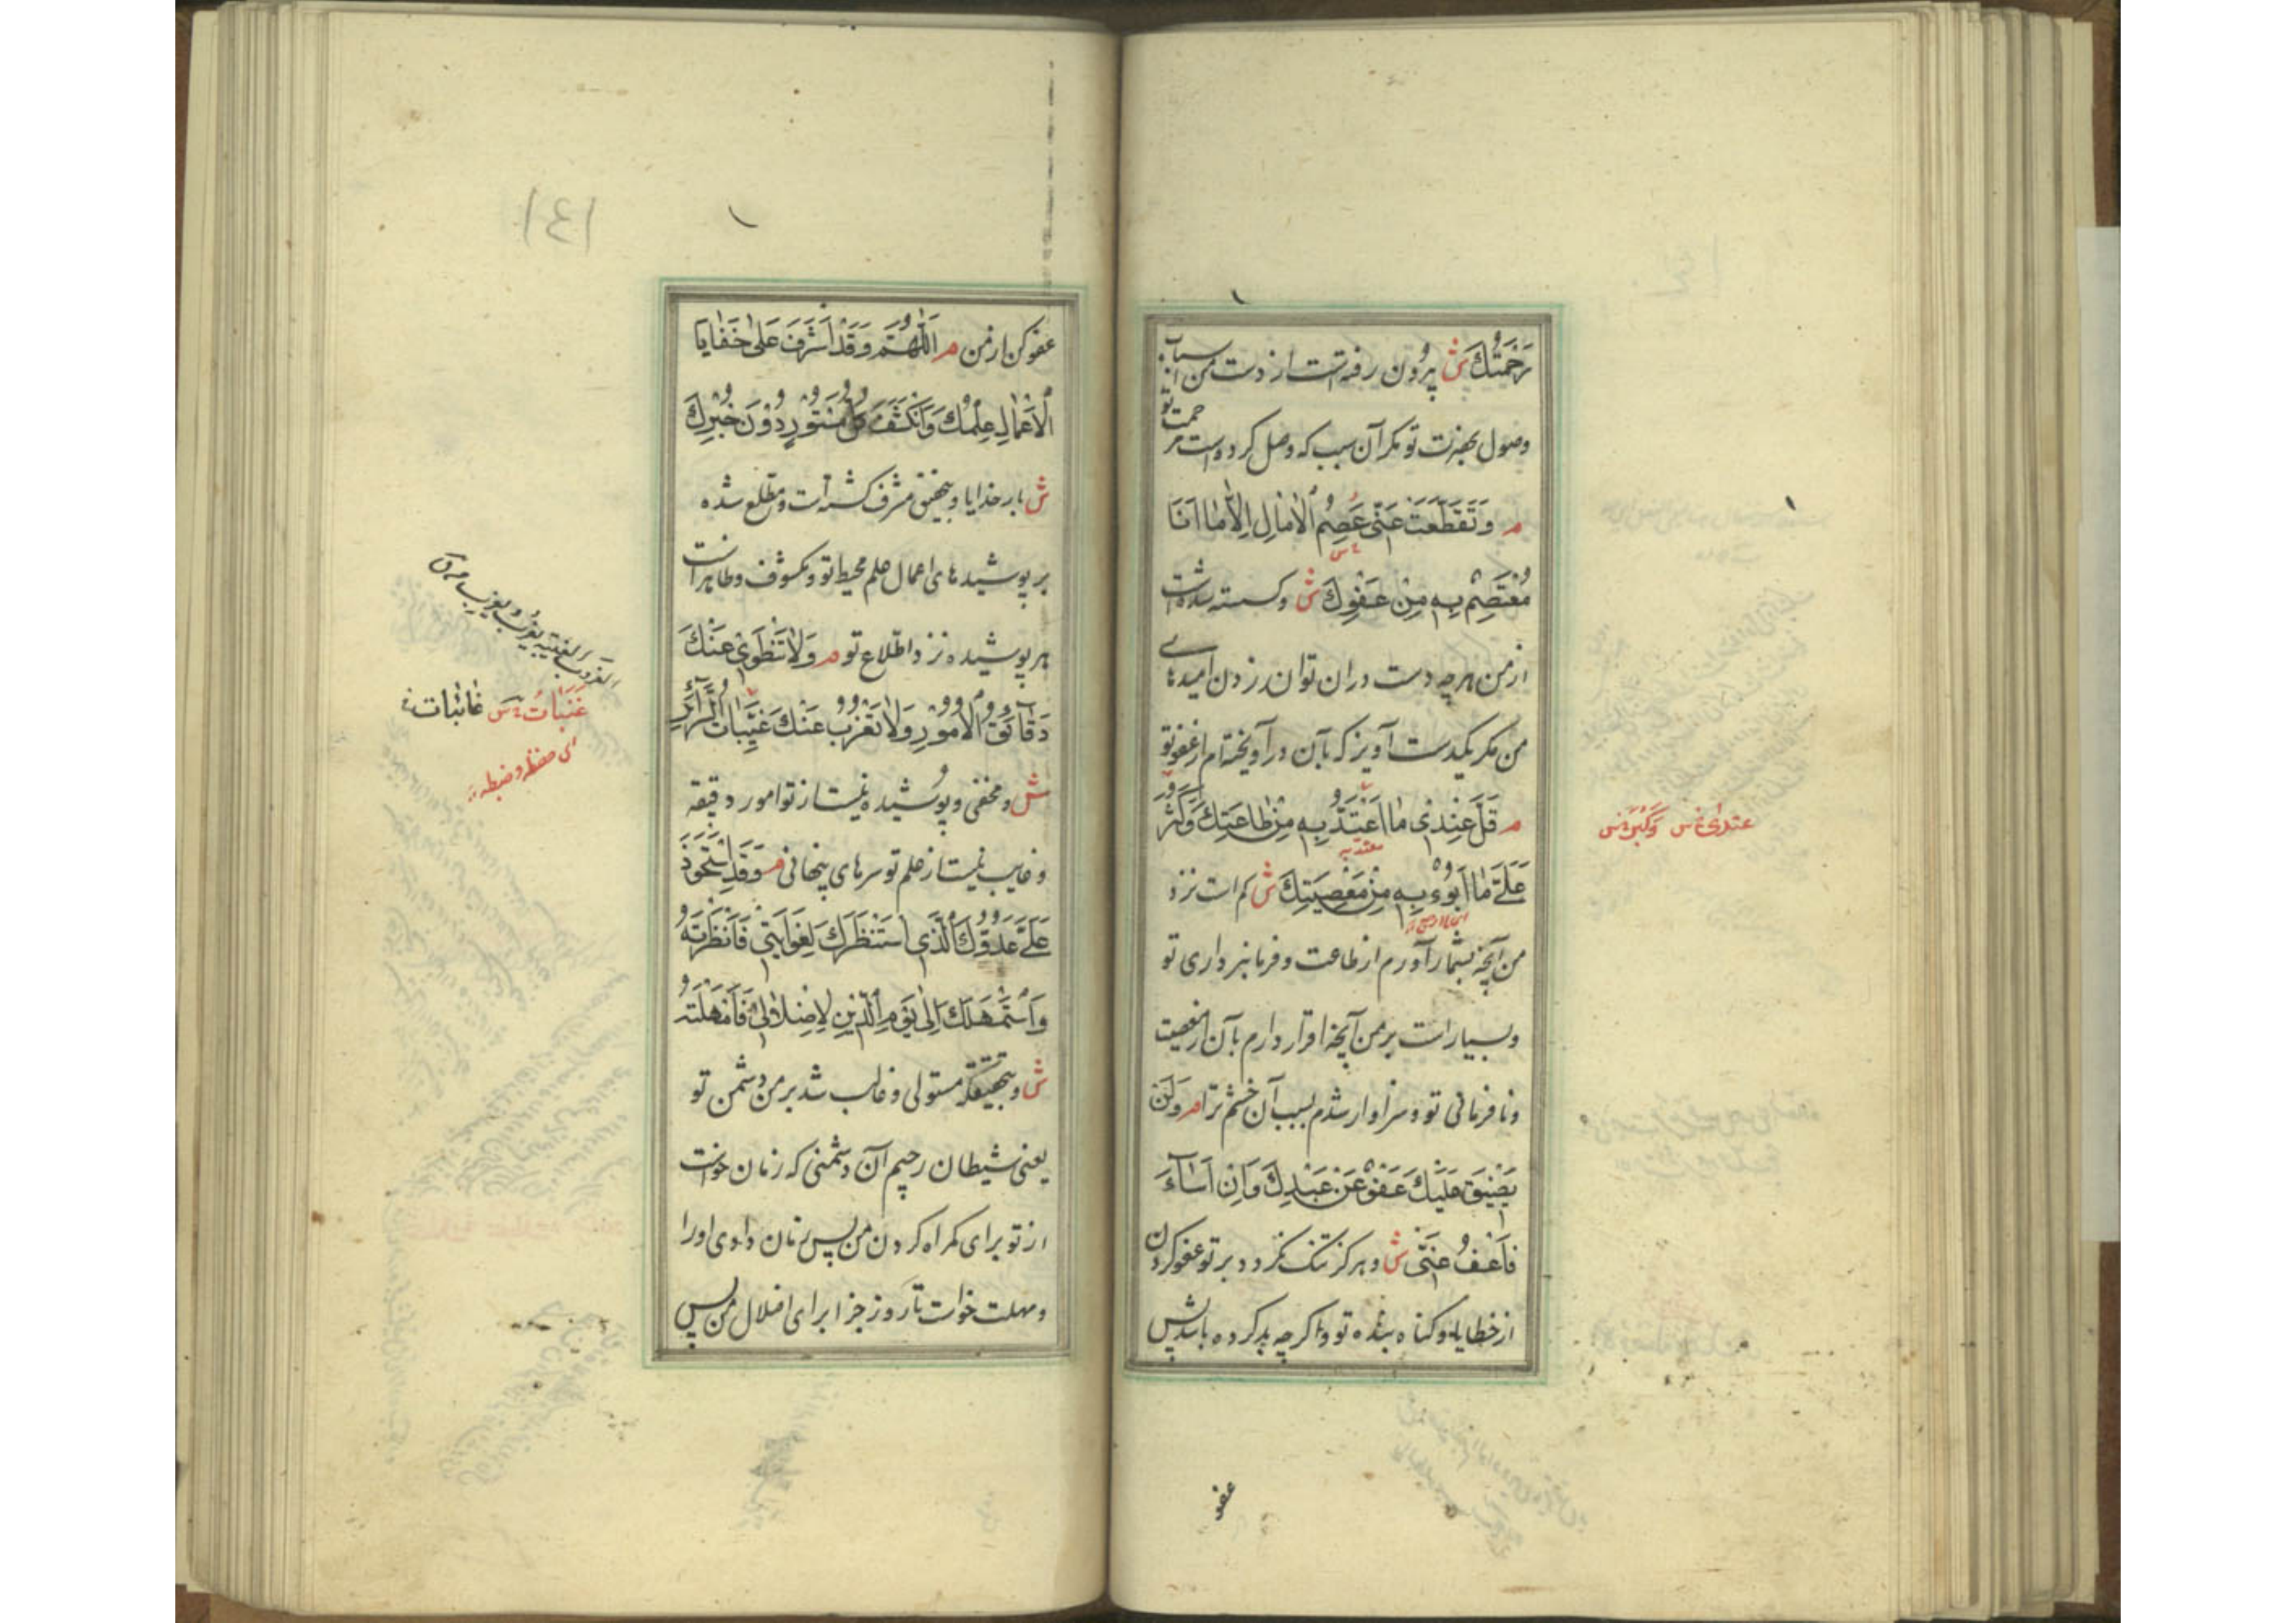 رَحْمَتُكَ ش بیرون رفته است از دست من اسباب
وصول بحضرت تو مکر آن سبب که وصل کرده است رحمت تو
م وَتَقَطَّعَتْ عَنّی عِصَمُ الْاٰمٰالِ اِلّٰا مٰا اَنَا
مُعْتَصِمٌ بِهِ مِنْ عَفْوِكَ ش وکسسته شده است
از من هر چه دست دران توان زدن امیدهای
من مکر یکدست آویز که بآن درآویخته ام از عفو تو
م قَلَّ عِنْدی مٰا اَعْتَدُّ بِهِ مِنْ طٰاعَتِكَ وَکَثُرَ
عَلَیَّ مٰا اَبُوءُ بِهِ مِنْ مَعْصِیَتِكَ ش کم است نزد
من آنچه بشمار آورم از طاعت وفرمانبرداری تو
وبسیار است بر من آنچه اقرار دارم بآن از معصیت
ونافرمانی تو وسزاوار شدم بسبب آن خشم ترا م وَلَنْ
یَضیقَ عَلَیْكَ عَفْوٌ عَنْ عَبْدِكَ وَاِنْ اَسٰاءَ
فَاعْفُ عَنّی ش وهرکز تنک نکردد بر تو عفو کردن
از خطایا وکناه بنده تو واکر چه بد کرده باشد پس
عفو
عفو کن از من م اَللّٰهُمَّ وَقَدْ اَشْرَفَ عَلیٰ خَفٰایَا
الْاَعْمٰالِ عِلْمُكَ وَانْکَشَفَ کُلُّ مَسْتُورٍ دُونَ خُبْرِكَ
ش بار خدایا وبتحقیق مشرف کشته است ومطلع شده
بر پوشیده های اعمال علم محیط تو ومکشوف وظاهر است
هر پوشیده نزد اطّلاع تو م وَلٰا تَنْطَوی عَنْكَ
دَقٰائِقُ الْاُمُورِ وَلٰا تَعْزُبُ عَنْكَ غَیِّبٰاتُ السَّرٰائِرِ
ش ومخفی وپوشیده نیست از تو امور دقیقه
وغایب نیست از علم تو سرهای پنهانی م وَقَدِ اسْتَحْوَذَ
عَلَیَّ عَدُوُّكَ الَّذِی اسْتَنْظَرَكَ لِغَوٰایَتی فَاَنْظَرْتَهُ
وَاسْتَمْهَلَكَ اِلیٰ یَوْمِ الدّینِ لِاِضْلٰالی فَاَمْهَلْتَهُ
ش وبتحقیقکه مستولی وغالب شد بر من دشمن تو
یعنی شیطان رجیم آن دشمنی که زمان خواست
از تو برای کمراه کردن من پس زمان دادی او را
ومهلت خواست تا روز جزا برای اضلال من پس
غَیَبٰاتُ س غٰائبٰات
ای حفظه وضبطه
١٤١